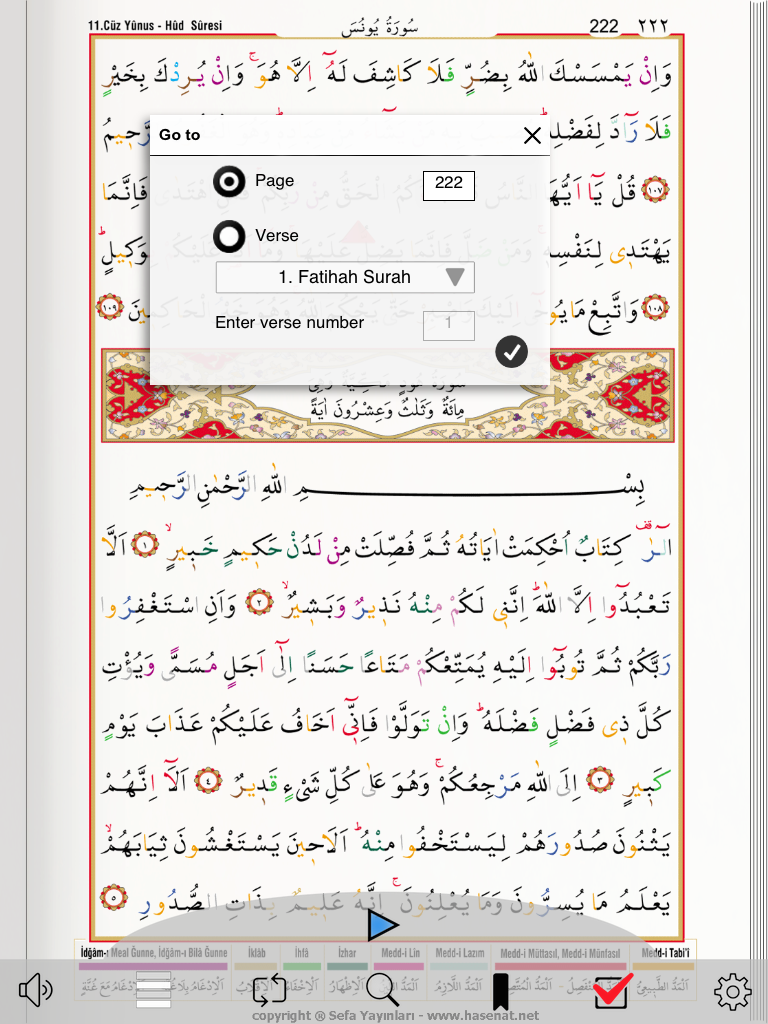 11.Cüz Yûnus - Hûd Sûresi
سُورَةُ يُونُسَ
222 ٢٢٢
وَاِنْ يَمْسَسْكَ اللّٰهُ بِضُرٍّ فَلَا كَاشِفَ لَهُٓ اِلَّا هُوَۚ وَاِنْ يُرِدْكَ بِخَيْرٍ
فَلَا رَٓادَّ لِفَضْلِهٖ
Go to
Page
222
١٠٧ قُلْ يَٓا اَيُّهَا النَّاسُ
فَاِنَّمَا
Verse
يَهْتَدٖي لِنَفْسِهٖۚ
بِوَكٖيلٍ
1. Fatihah Surah
١٠٨ وَاتَّبِعْ مَا يُوحٰٓى اِلَيْكَ
١٠٩
Enter verse number
1
مِائَةٌ وَثَلٰثٌ وَعِشْرُونَ اٰيَةً
بِسْمِ اللّٰهِ الرَّحْمٰنِ الرَّحٖيمِ
الٓرٰ۠ كِتَابٌ اُحْكِمَتْ اٰيَاتُهُ ثُمَّ فُصِّلَتْ مِنْ لَدُنْ حَكٖيمٍ خَبٖيرٍۙ ١ اَلَّا
تَعْبُدُٓوا اِلَّا اللّٰهَۜ اِنَّنٖي لَكُمْ مِنْهُ نَذٖيرٌ وَبَشٖيرٌۙ ٢ وَاَنِ اسْتَغْفِرُوا
رَبَّكُمْ ثُمَّ تُوبُٓوا اِلَيْهِ يُمَتِّعْكُمْ مَتَاعًا حَسَنًا اِلٰٓى اَجَلٍ مُسَمًّى وَيُؤْتِ
كُلَّ ذٖي فَضْلٍ فَضْلَهُۜ وَاِنْ تَوَلَّوْا فَاِنّٖٓي اَخَافُ عَلَيْكُمْ عَذَابَ يَوْمٍ
كَبٖيرٍ ٣ اِلَى اللّٰهِ مَرْجِعُكُمْۚ وَهُوَ عَلٰى كُلِّ شَيْءٍ قَدٖيرٌ ٤ اَلَٓا اِنَّهُمْ
يَثْنُونَ صُدُورَهُمْ لِيَسْتَخْفُوا مِنْهُۜ اَلَا حٖينَ يَسْتَغْشُونَ ثِيَابَهُمْۙ
يَعْلَمُ مَا يُسِرُّونَ وَمَا يُعْلِنُونَۚ اِنَّهُ عَلٖيمٌ بِذَاتِ الصُّدُورِ ٥
İdğâm-ı Meal Ğunne, İdğâm-ı Bilâ Ğunne
İklâb
İhfâ
İzhar
Medd-i Lin
Medd-i Lazım
Medd-i Müttasıl, Medd-i Münfasıl
Medd-i Tabi'i
copyright ® Sefa Yayınları - www.hasenat.net